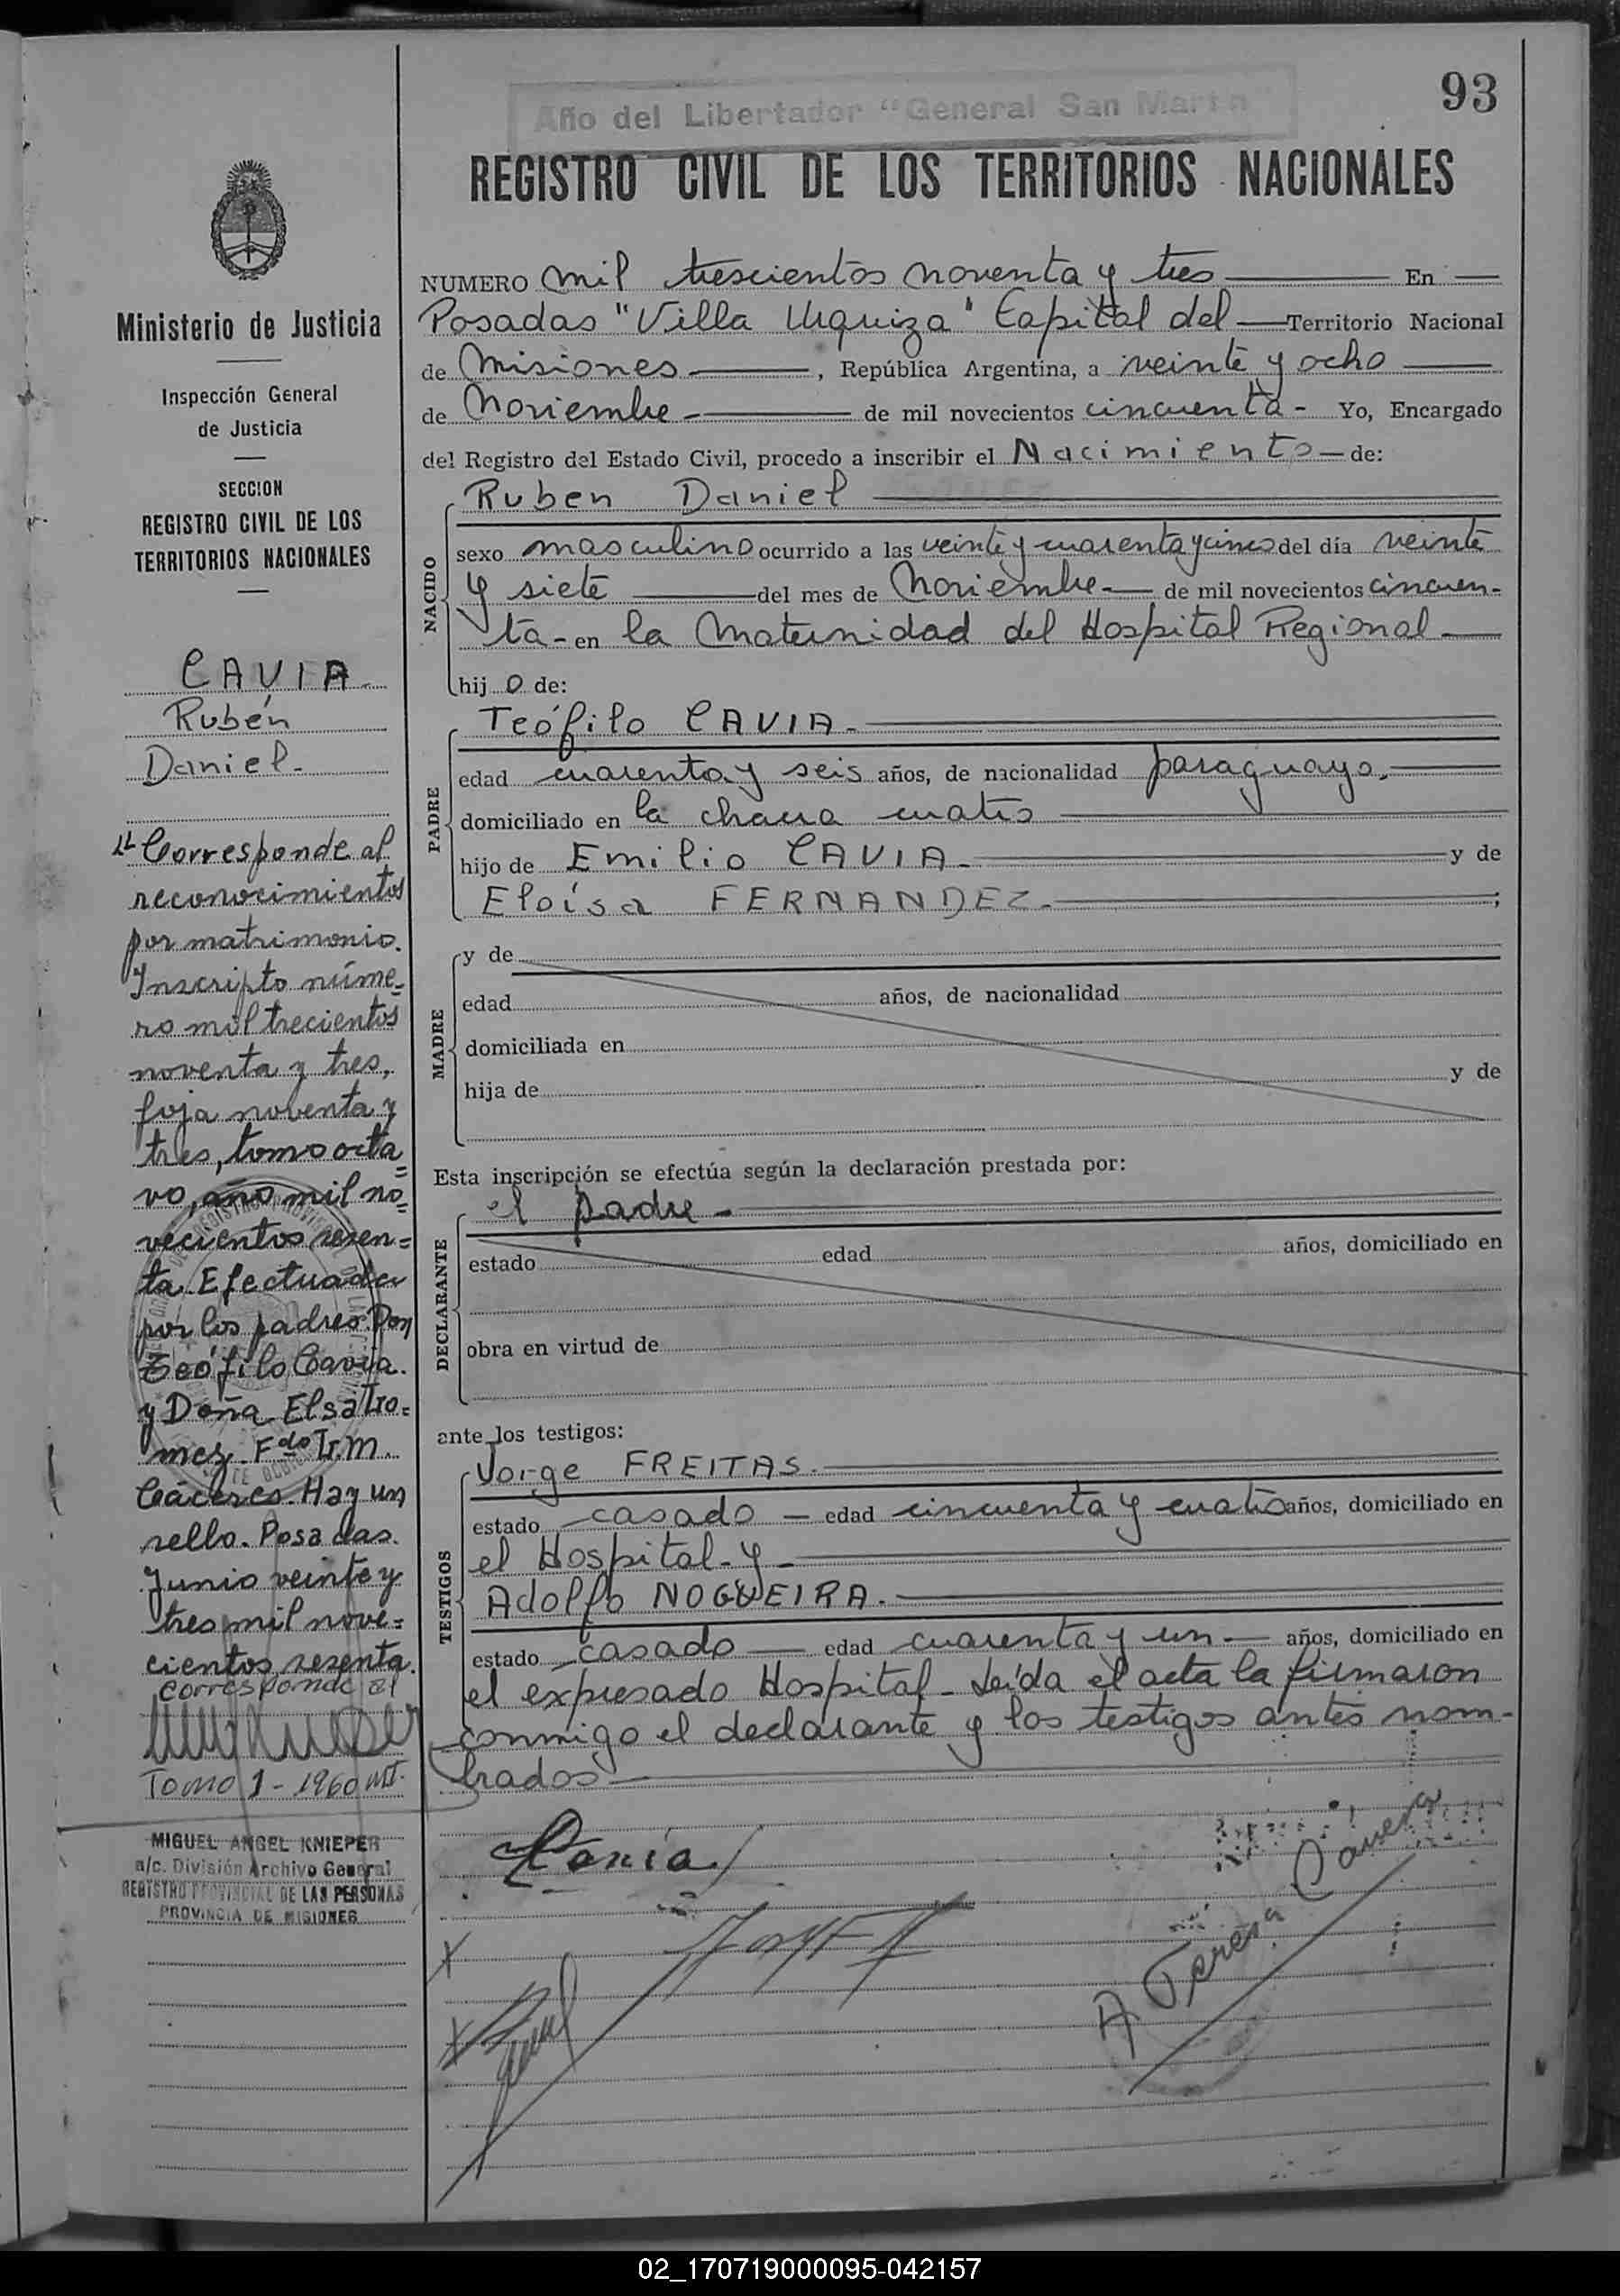 93
Año del Libertador "General San Martin
REGISTRO CIVIL DE LOS TERRITORIOS NACIONALES
NUMERO mil trescientos noventa y tres En
Posadas "Villa Urquiza" Capital del Territorio Nacional
de Misiones, República Argentina, a veinte y ocho
de Noviembre - de mil novecientos cincuenta - Yo, Encargado
del Registro del Estado Civil, procedo a inscribir el Nacimiento de:
NACIDO
Ruben Daniel
sexo masculino ocurrido a las veinte y cuarenta y cinco del día veinte
y siete del mes de Noviembre - de mil novecientos cincuen-
ta - en la Maternidad del Hospital Regional
hij o de:
PADRE
Teófilo CAVIA -
edad cuarenta y seis años, de nacionalidad paraguayo.
domiciliado en la chacra cuatro
hijo de Emilio CAVIA - y de
Eloísa FERNANDEZ - ;
MADRE
y de
edad años, de nacionalidad
domiciliada en
hija de y de
Esta inscripción se efectúa según la declaración prestada por:
DECLARANTE
el padre -
estado edad años, domiciliado en
obra en virtud de
ante los testigos:
TESTIGOS
Jorge FREITAS.
estado casado - edad cincuenta y cuatro años, domiciliado en
el Hospital - y -
Adolfo NOGUEIRA.
estado casado - edad cuarenta y un - años, domiciliado en
el expresado Hospital - Leída el acta la firmaron
conmigo el declarante y los testigos antes nom-
brados
Cavia
A Teresa
Ministerio de Justicia
Inspección General
de Justicia
SECCION
REGISTRO CIVIL DE LOS
TERRITORIOS NACIONALES
CAVIA
Rubén
Daniel -
Corresponde al
reconocimiento
por matrimonio.
Inscripto núme-
ro mil trecientos
noventa y tres,
foja noventa y
tres, tomo octa
vo, año mil no
vecientos sesen=
ta. Efectuada
por los padres Don
Teófilo Cavia.
y Doña Elsa Tro=
mez. Fdo Tr. M.
Caceres. Hay un
sello. Posadas.
Junio veinte y
tres mil nove=
cientos sesenta.
corresponde al
Tomo 1 - 1960 MI.
MIGUEL ANGEL KNIEPER
a/c. División Archivo General
REGISTRO PROVINCIAL DE LAS PERSONAS
PROVINCIA DE MISIONES
02_170719000095-042157